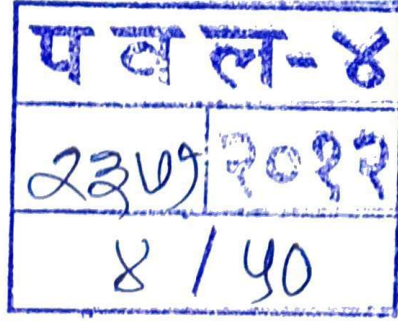 प व ल-४
२३७९ २०१२
४ / ५०